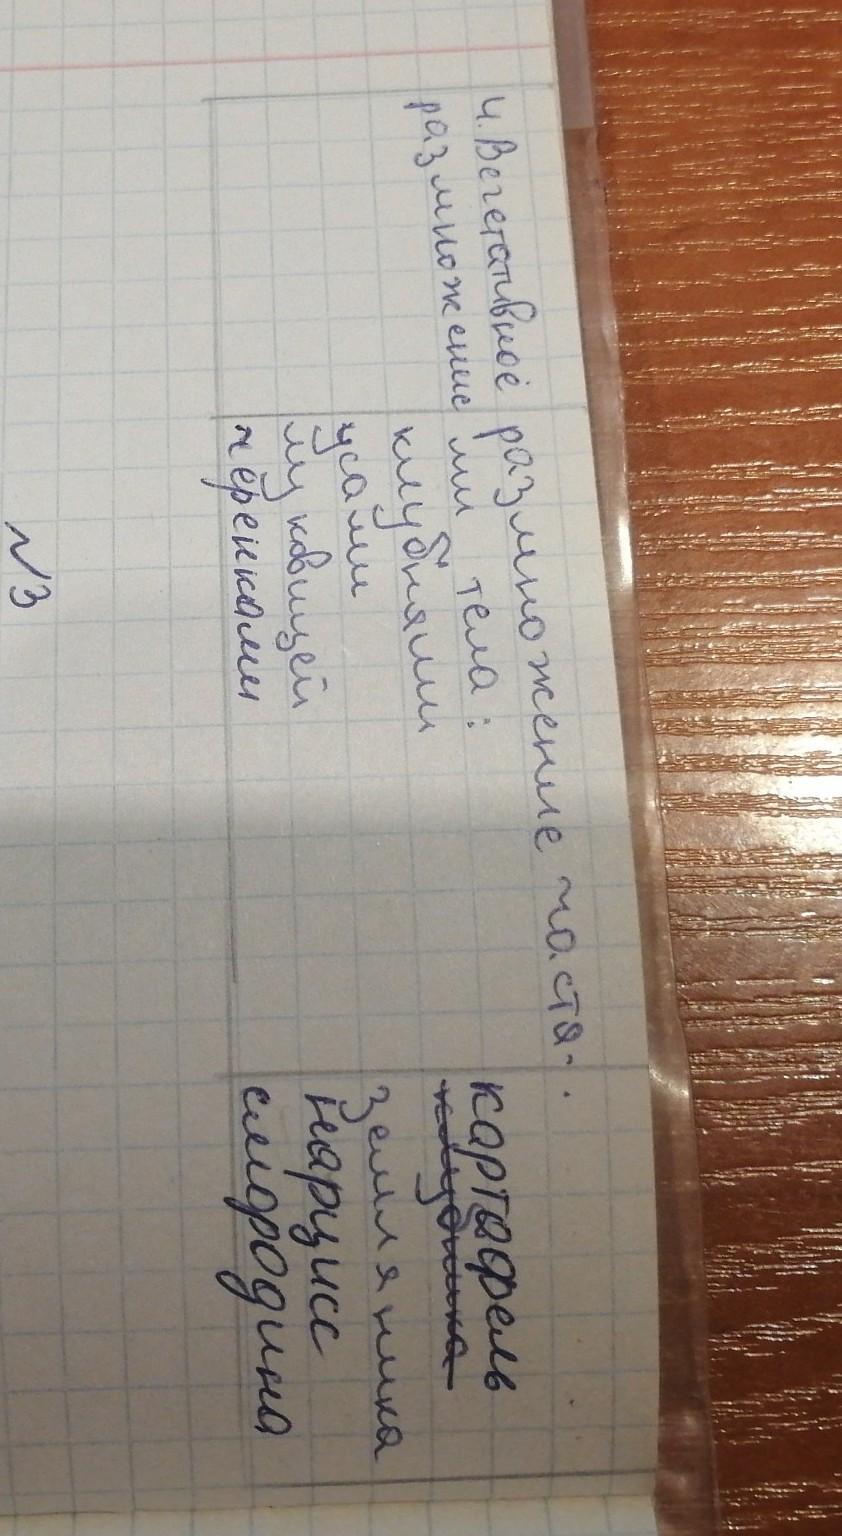 4. Вегетативное размножение частя-
размножение ми тела:
картофель
клубнями клубника
усами земляника
луковицей нарцисс
черенками смородина
№3